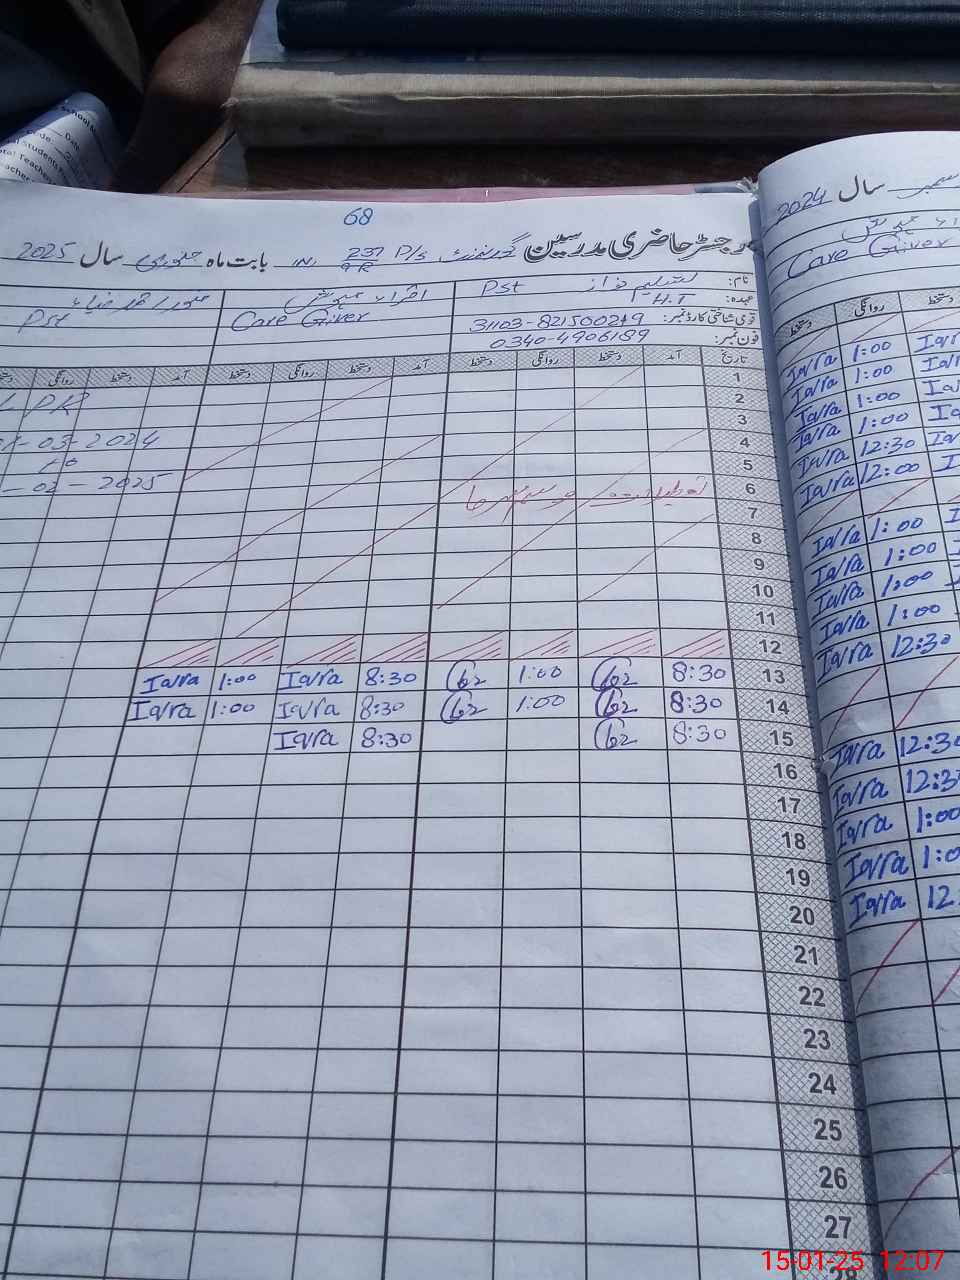 School
Date
68
رجسٹر حاضری مدرسین گورنمنٹ P/s 237/9-R بابت ماہ جنوری سال 2025
نام: تسلیم نواز PST
عہدہ: I.H.T
قومی شناختی کارڈ نمبر:
فون نمبر: 0340-4906189
اقراء
Care Giver
PST
تاریخ آمد دستخط روانگی دستخط آمد دستخط روانگی دستخط آمد دستخط روانگی
1
2
3
4
5
6
7
8
9
10
11
12
13 8:30 1:00 8:30 Iqra 1:00 Iqra
14 8:30 1:00 8:30 Iqra 1:00 Iqra
15 8:30 8:30 Iqra
16
17
18
19
20
21
22
23
24
25
26
27
28
03-2024
to
02-2025
سال 2024
Care Giver
دستخط روانگی دستخط
Iqra 1:00
Iqra 1:00
Iqra 1:00
Iqra 1:00
Iqra 12:30
Iqra 12:00
Iqra 1:00
Iqra 1:00
Iqra 1:00
Iqra 1:00
Iqra 12:30
Iqra 12:30
Iqra 12:30
Iqra 1:00
Iqra 1:0
Iqra 12:
15-01-25 12:07